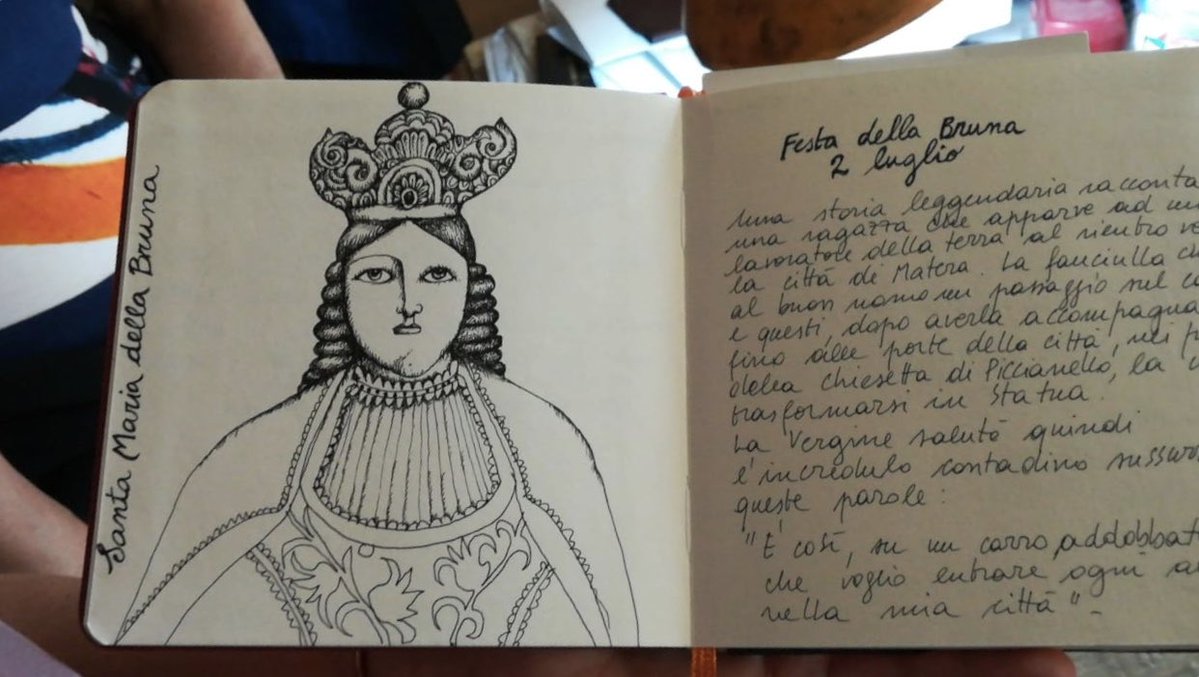 Santa Maria della Bruna
Festa della Bruna
2 luglio
una storia leggendaria racconta
una ragazza che apparve ad un
lavoratore della terra al rientro
la città di Matera. La fanciulla
al buon uomo un passaggio sul
e questi, dopo averla
fino alle porte della città, nei
della chiesetta di Piccianello, la
trasformarsi in Statua.
La Vergine salutò quindi
l'incredulo contadino
queste parole:
"È così, su un carro addobbat
che voglio entrare ogni
nella mia città"-